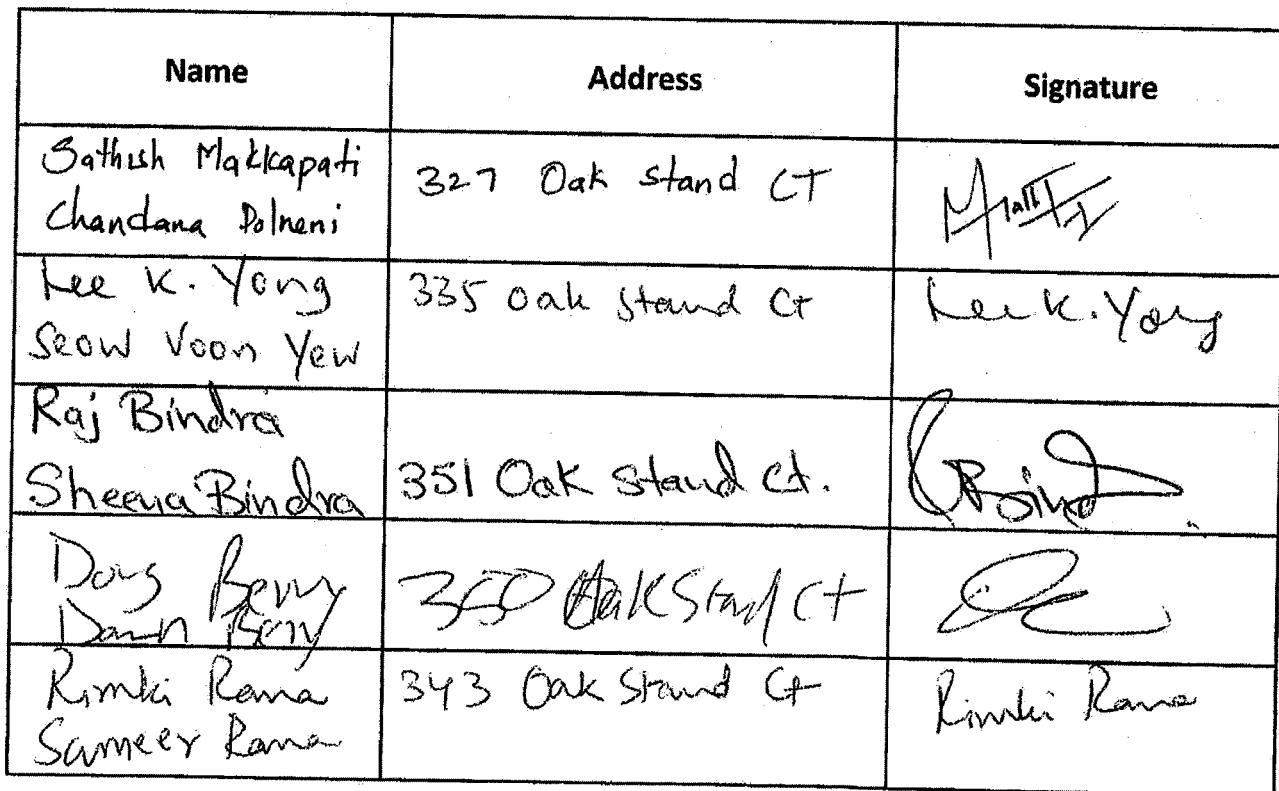 Name Address Signature
Sathish Makkapati
Chandana Polneni
327 Oak Stand CT
Lee K. Yong
Seow Voon Yew
335 Oak Stand Ct
Lee K. Yong
Raj Bindra
Sheena Bindra
351 Oak Stand Ct.
Doug Berry
Dawn Berry
350 Oak Stand Ct
Rimki Rana
Sameer Rana
343 Oak Stand Ct
Rimki Rana